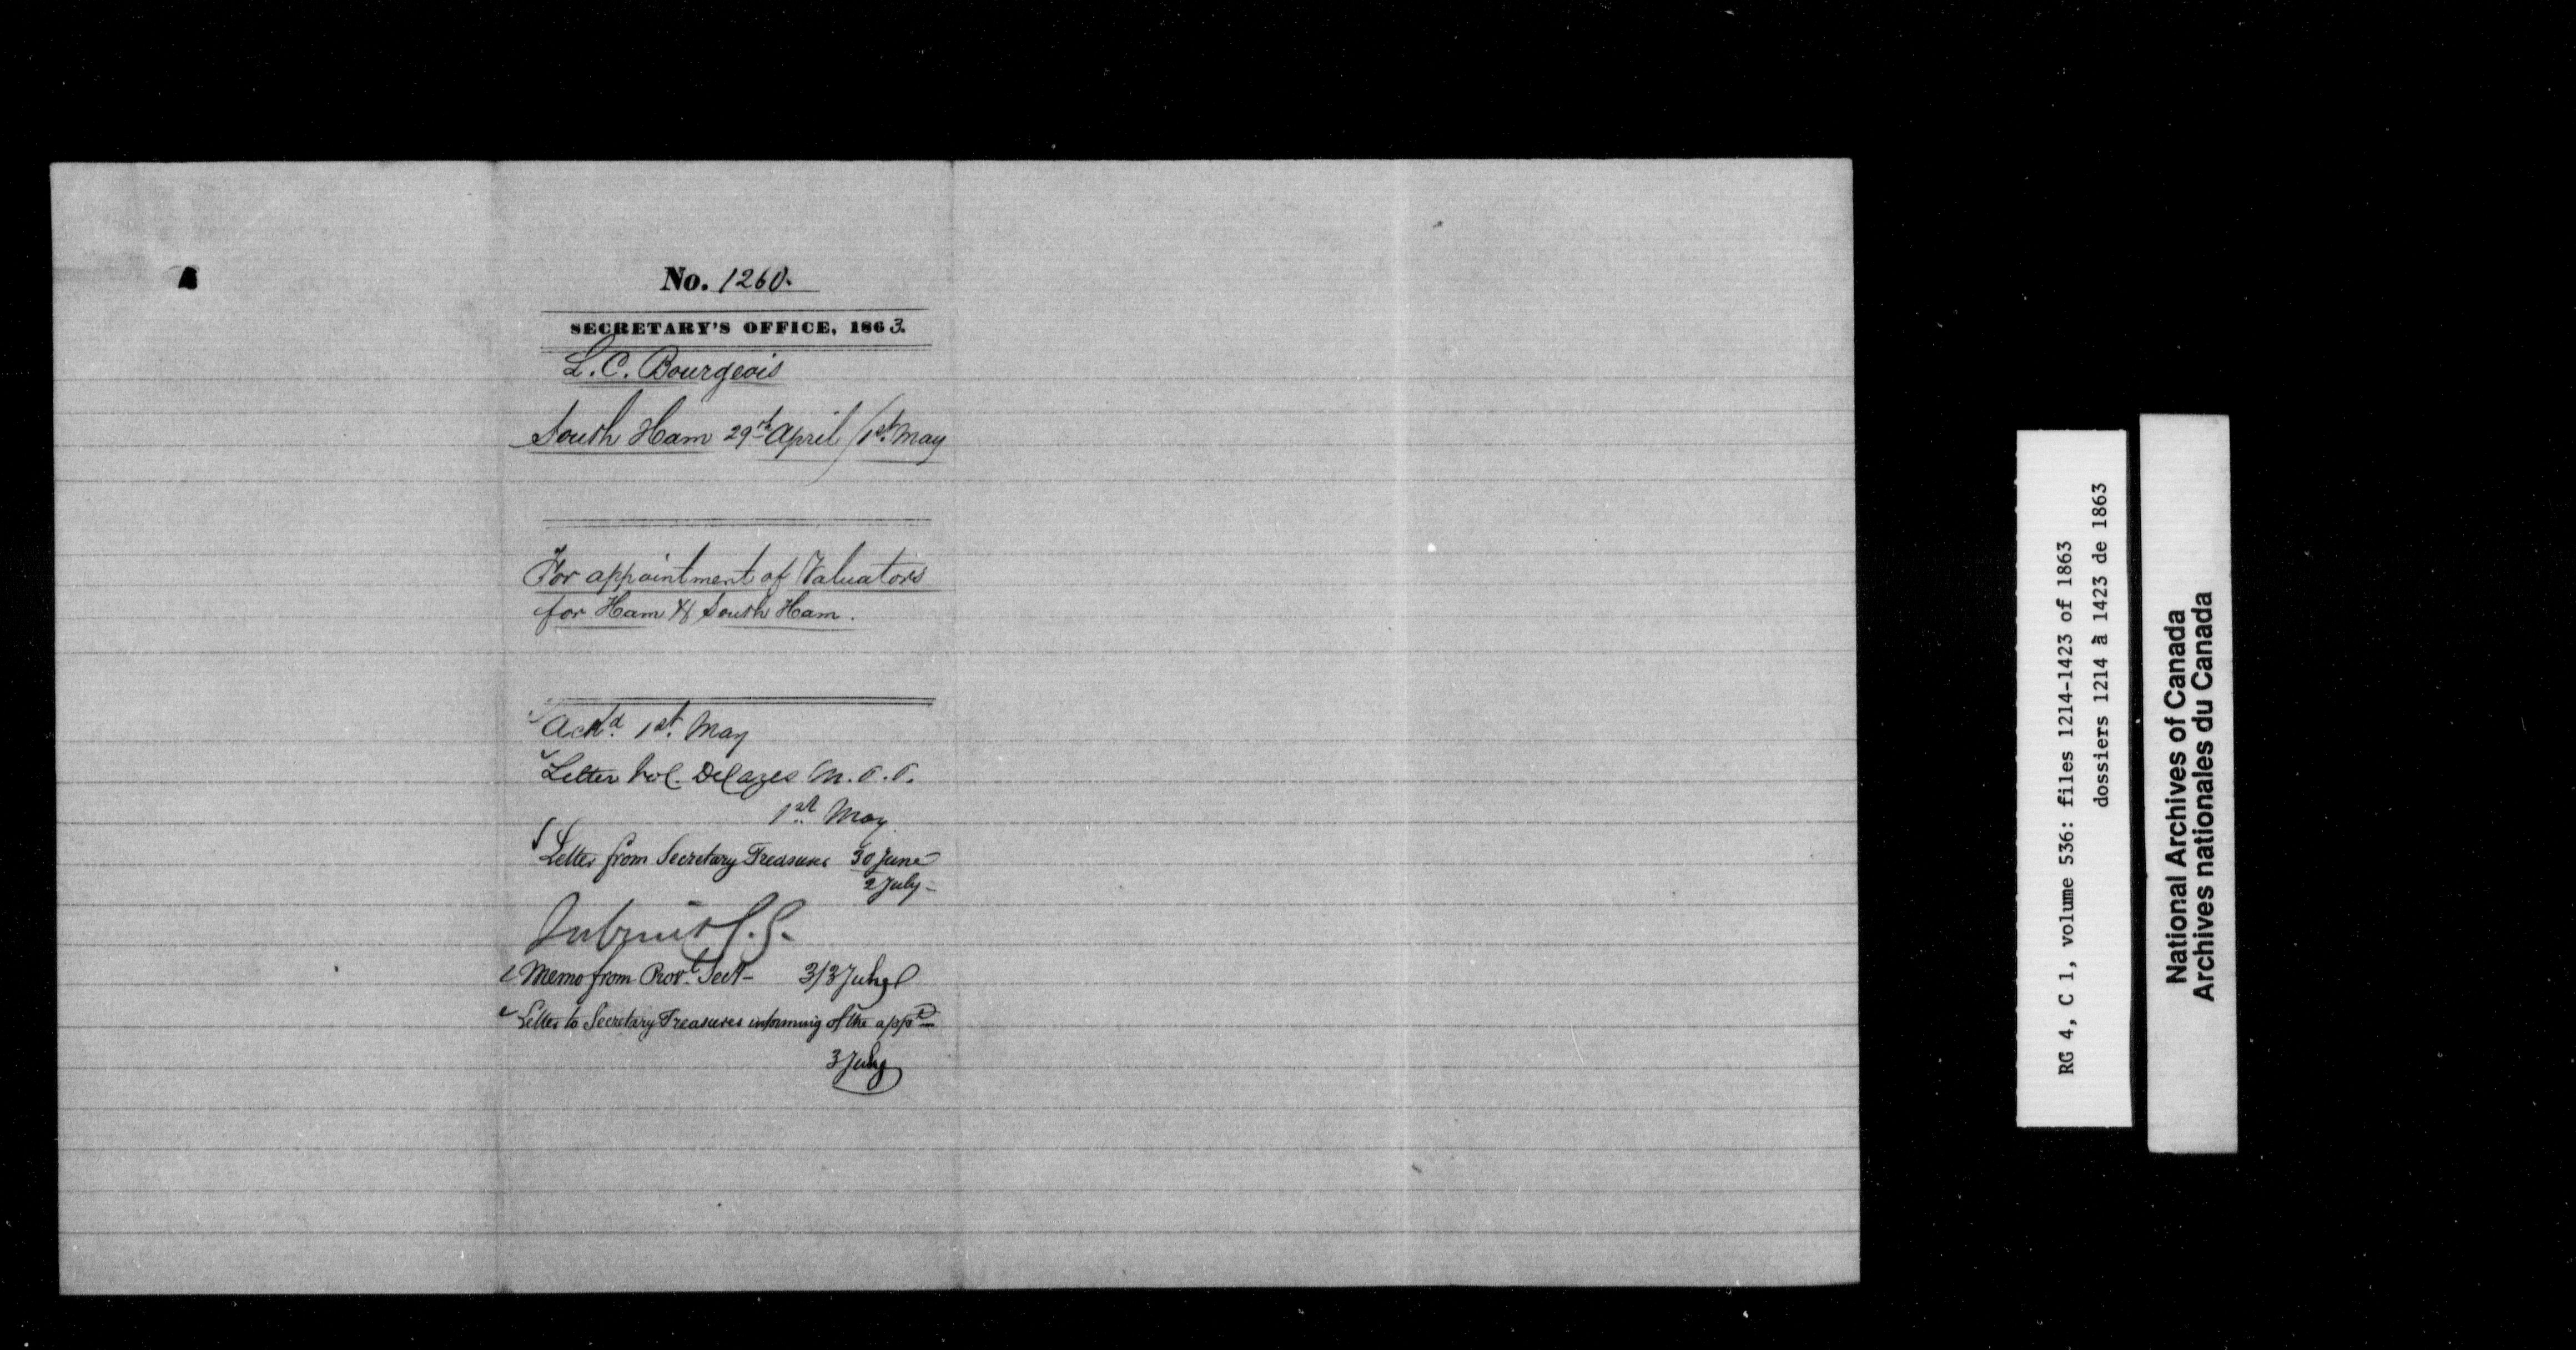 No. 1260.
SECRETARY'S OFFICE, 1863.
L. C. Bourgeois
South Ham 29th April / 1st May
For appointment of Valuators
for Ham & South Ham.
Ackd. 1st. May
Letter M.P.P.
1st May
Letter from Secretary Treasurer 30 June
2 July -
Submit
Memo from Prov. Secy - 3/3 July
Letter to Secretary Treasurer informing of the appt
3 July
RG 4, C 1, volume 536: files 1214-1423 of 1863
dossiers 1214 à 1423 de 1863
National Archives of Canada
Archives nationales du Canada